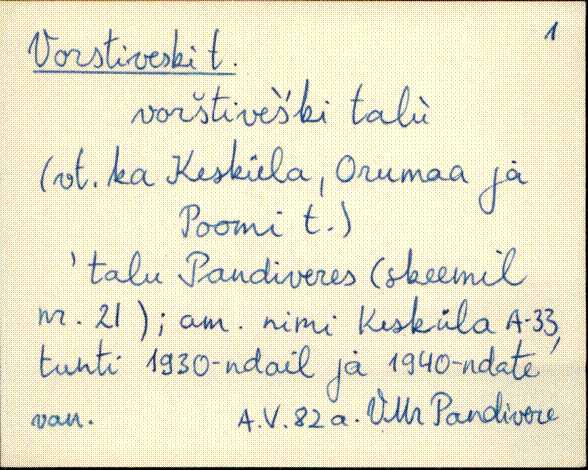 1
Vorstiveski t.
vorštive`š'ki talù
(vt. ka Kesküla, Orumaa ja
Poomi t.)
'talu Pandiveres (skeemil
nr. 21); am. nimi Kesküla A-33,
tunti 1930-ndail ja 1940-ndate
van. A.V. 82 a. VMr Pandivere